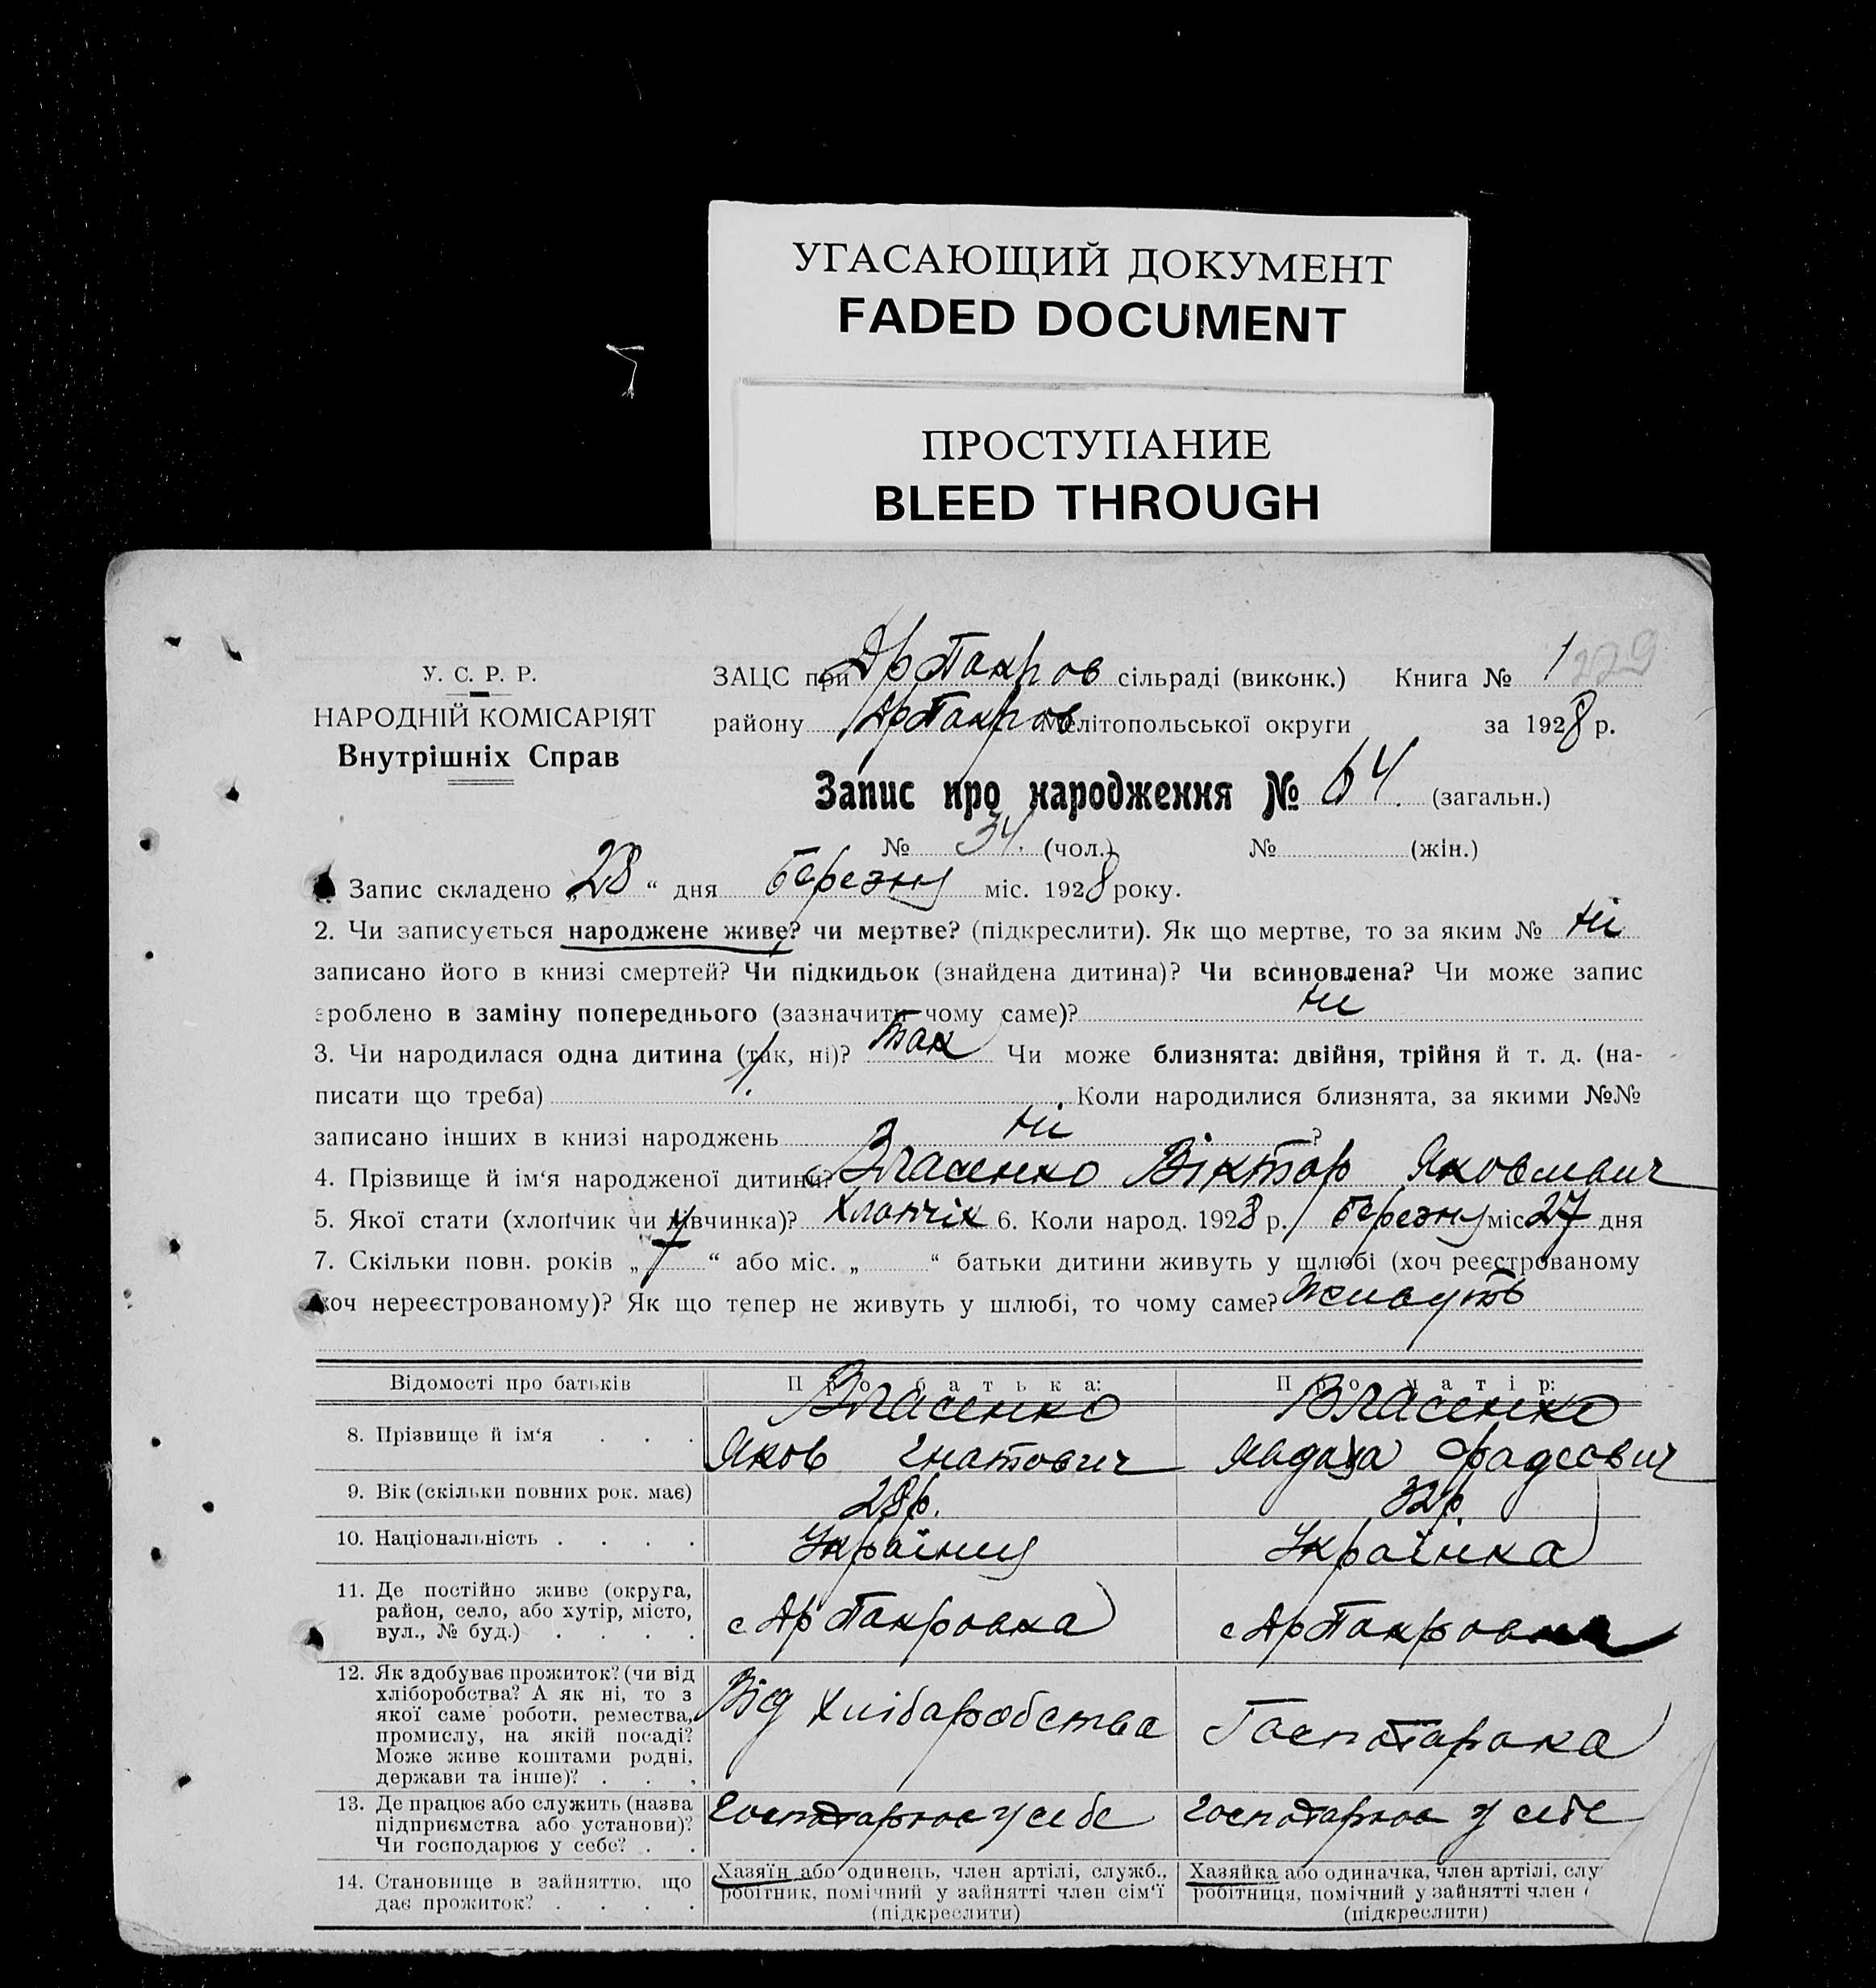 УГАСАЮЩИЙ ДОКУМЕНТ
FADED DOCUMENT
ПРОСТУПАНИЕ
BLEED THROUGH
У. С. Р. Р.
НАРОДНІЙ КОМІСАРІЯТ
Внутрішніх Справ
ЗАЦС при Др Покров сільраді (виконк.) Книга № 1 229
району Др Покров Мелітопольської округи за 1928 р.
Запис про народження № 64. (загальн.)
№ 34. (чол.) № (жін.)
1. Запис складено „28“ дня березня міс. 1928 року.
2. Чи записується народжене живе? чи мертве? (підкреслити). Як що мертве, то за яким № ні
записано його в книзі смертей? Чи підкидьок (знайдена дитина)? Чи всиновлена? Чи може запис
зроблено в заміну попереднього (зазначити чому саме)? ні
3. Чи народилася одна дитина (так, ні)? Так Чи може близнята: двійня, трійня й т. д. (на-
писати що треба) Коли народилися близнята, за якими №№
записано інших в книзі народжень ні ?
4. Прізвище й ім‘я народженої дитини? Власенко Віктор Яковлевич
5. Якої стати (хлопчик чи дівчинка)? Хлопчік 6. Коли народ. 1928 р. березня міс 27 дня
7. Скільки повн. років „7“ або міс. „ “ батьки дитини живуть у шлюбі (хоч реєстрованому
хоч нереєстрованому)? Як що тепер не живуть у шлюбі, то чому саме? Живуть
Відомості про батьків Про батька: Про матір:
8. Прізвище й ім‘я . . . Власенко Яков Гнатович Власенко Фадеович
9. Вік (скільки повних рок. має) 28р. 32р.
10. Національність . . . . Українец Українка
11. Де постійно живе (округа,
район, село, або хутір, місто,
вул., № буд.) . . . . с Др Покровка с Др Покровка
12. Як здобуває прожиток? (чи від
хліборобства? А як ні, то з
якої саме роботи, ремества,
промислу, на якій посаді?
Може живе коштами родні,
держави та інше)? . . . Від Хлібаробства Госпотарка
13. Де працює або служить (назва
підприємства або установи)?
Чи господарює у себе? . . госпотарює у себе госпотарює у себе
14. Становище в зайняттю, що
дає прожиток? . . . .
Хазяїн або одинець, член артілі, служб.,
робітник, помічний у зайнятті член сім‘ї
(підкреслити)
Хазяйка або одиначка, член артілі, слу
робітниця, помічний у зайнятті член
(підкреслити)